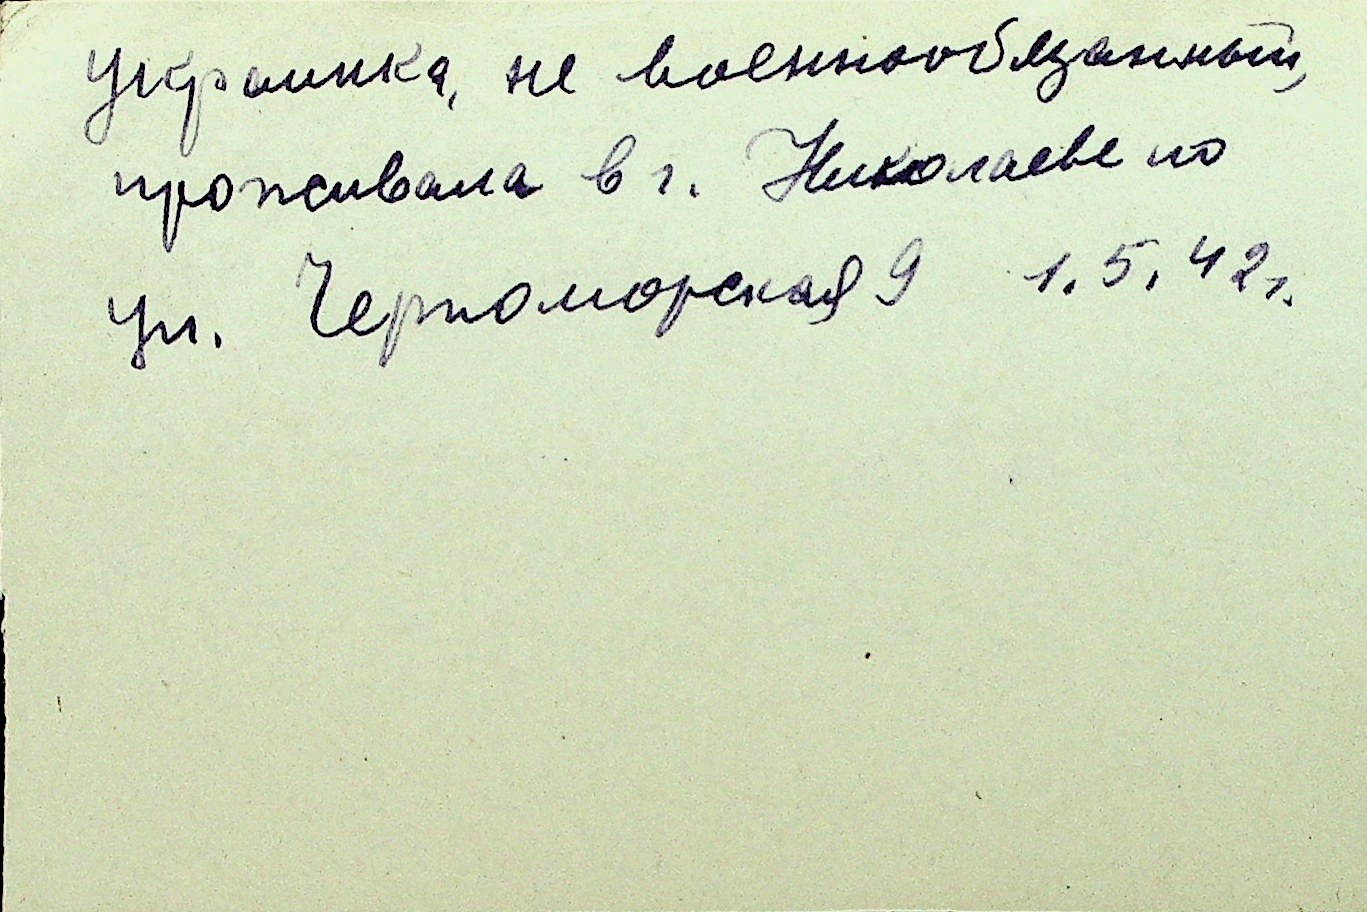 украинка, не военнообязанный,
проживала в г. Николаеве по
ул. Черноморская 9 1.5.42г.